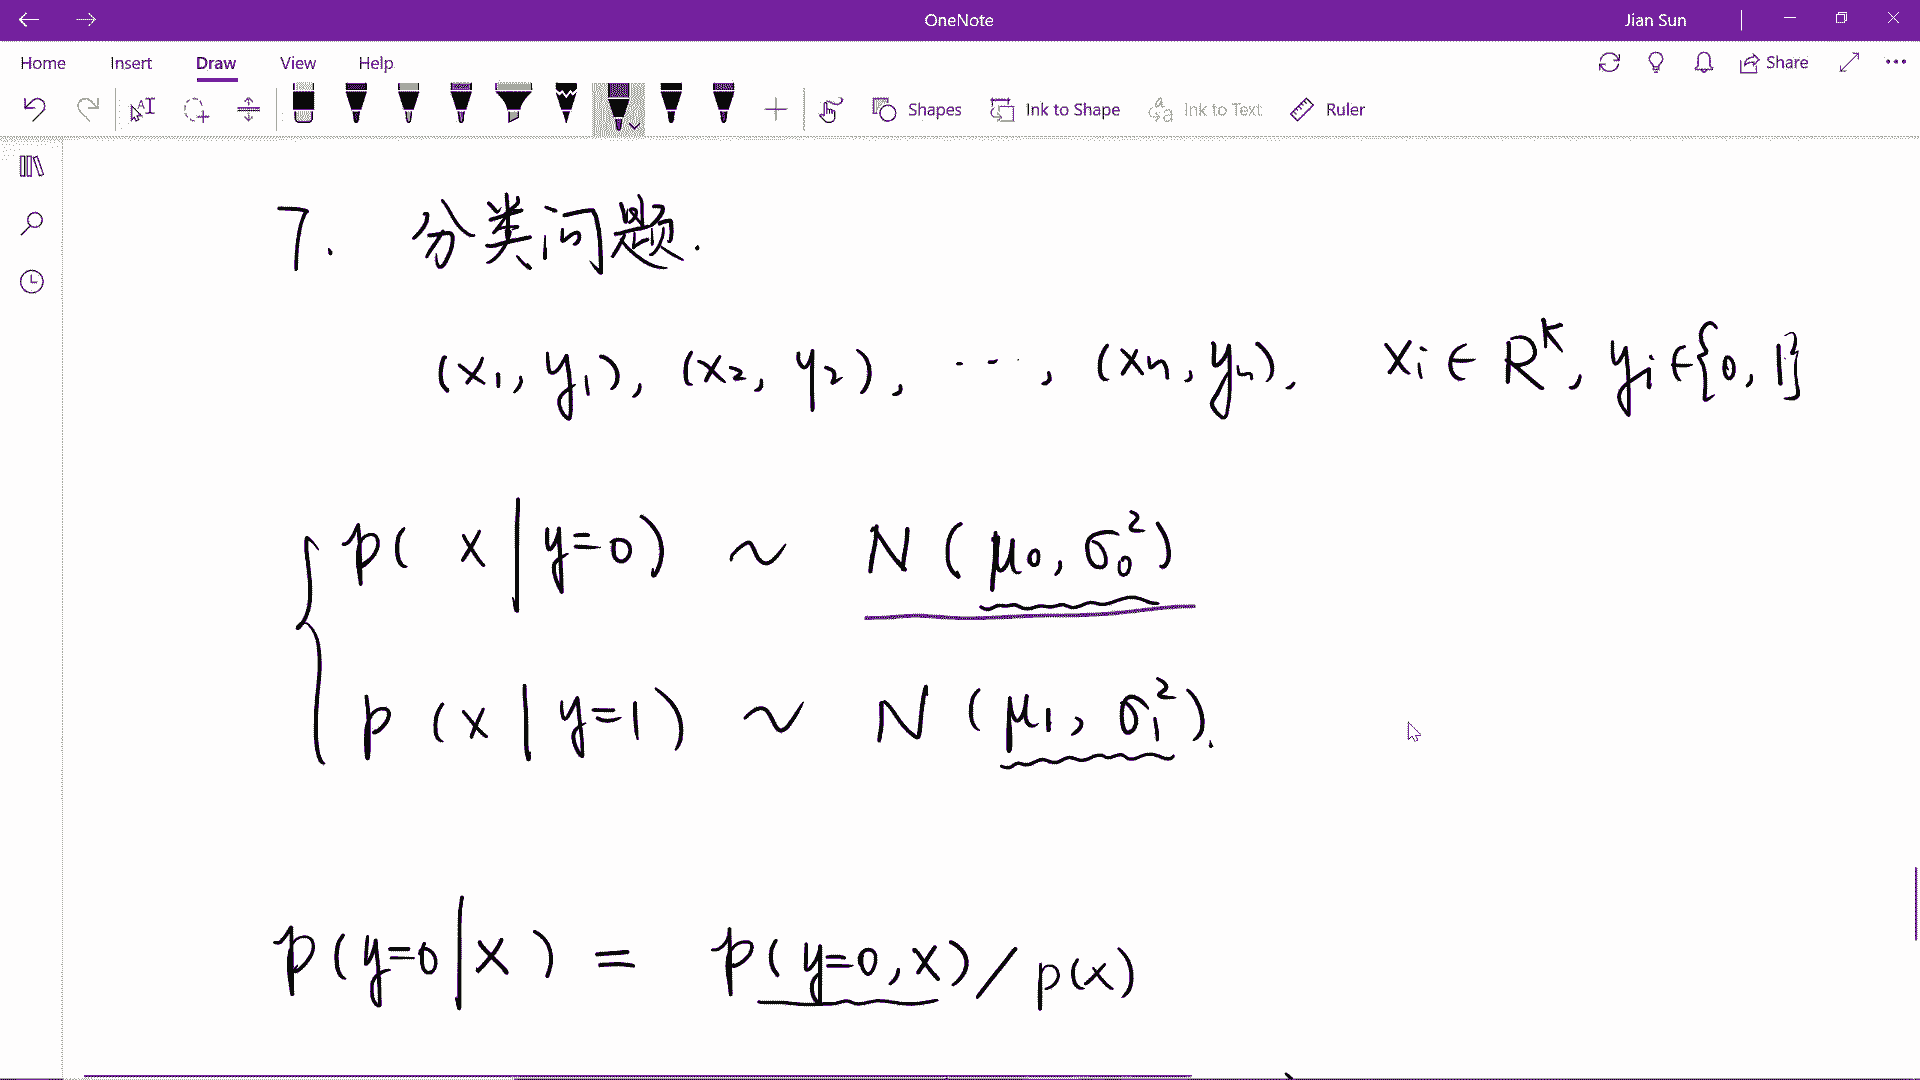 OneNote
Jian Sun
Home Insert Draw View Help
Share
Shapes Ink to Shape Ink to Text Ruler
7. 分类问题.
(x₁, y₁), (x₂, y₂), ⋯, (xₙ, yₙ). xᵢ ∈ Rᴷ, yᵢ ∈ {0, 1}
p( x | y=0) ~ N ( μ₀, σ₀²)
p (x | y=1) ~ N ( μ₁, σ₁²).
p(y=0|x) = p(y=0, x) / p(x)